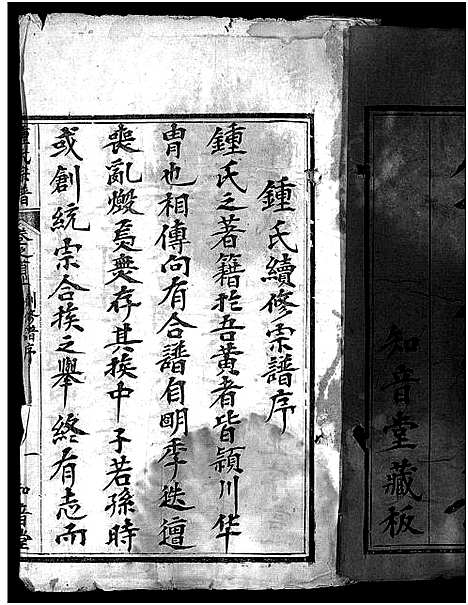 知音堂藏板
鍾氏續修宗譜序
鍾氏之著籍於吾黃者皆頴川华
胄也相傳向有合譜自明季迭遭
喪亂燬焉無存其族中子若孫時
或創統宗合族之舉終有志而
鍾氏宗譜 卷之首 譜序 一 知音堂